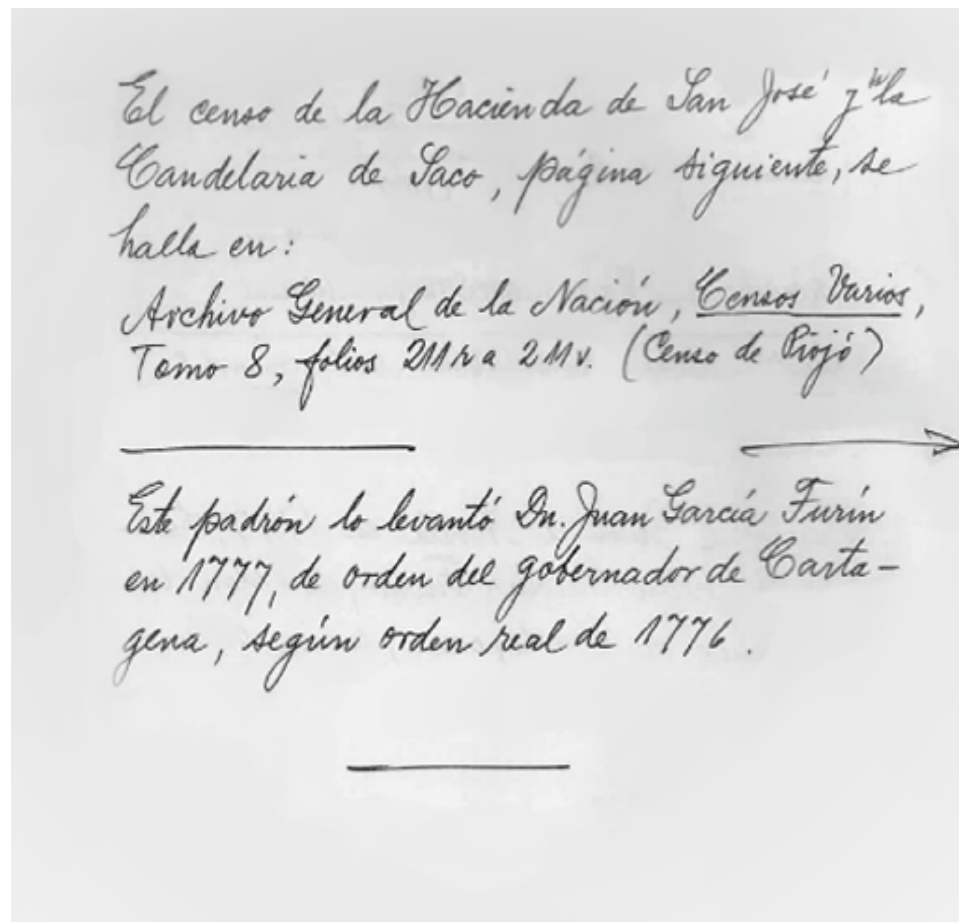 El censo de la Hacienda de San José y la
Candelaria de Saco, página siguiente, se
halla en:
Archivo General de la Nación, Censos Varios,
Tomo 8, folios 211 r a 211 v. (Censo de Piojó)
Este padrón lo levantó Dn. Juan García Turín
en 1777, de orden del gobernador de Carta-
gena, según orden real de 1776.